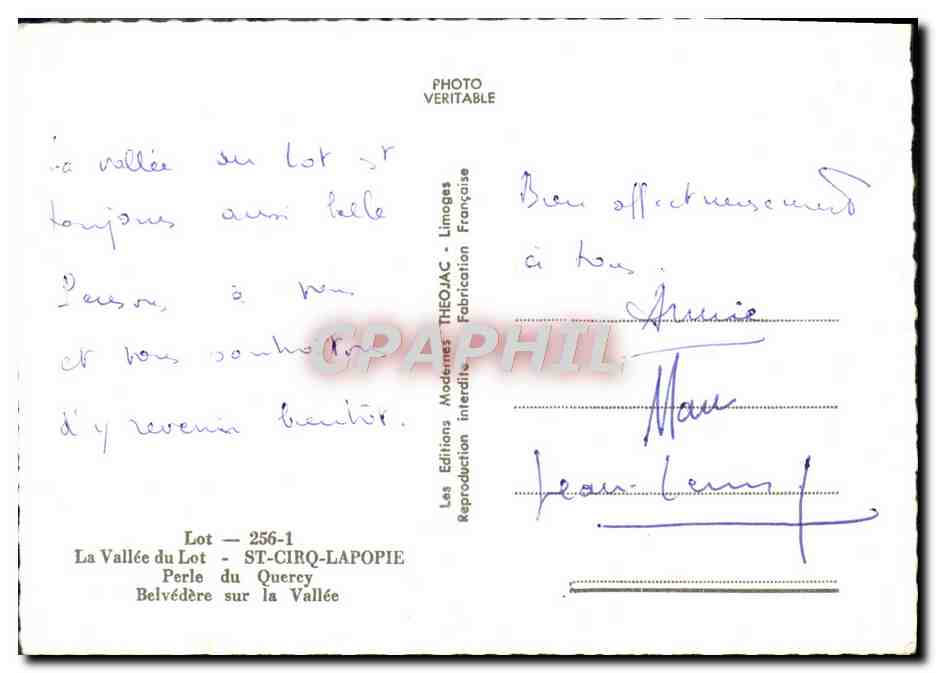 PHOTO
VERITABLE
La vallée du Lot est
toujours aussi belle
Pensons à vous
et vous souhaitons
d'y revenir bientôt.
Lot — 256-1
La Vallée du Lot - ST-CIRQ-LAPOPIE
Perle du Quercy
Belvédère sur la Vallée
Les Editions Modernes THEOJAC - Limoges
Reproduction interdite Fabrication Française
Bien affectueusement
à tous.
Annie
Jean-Louis
CPAPHIL